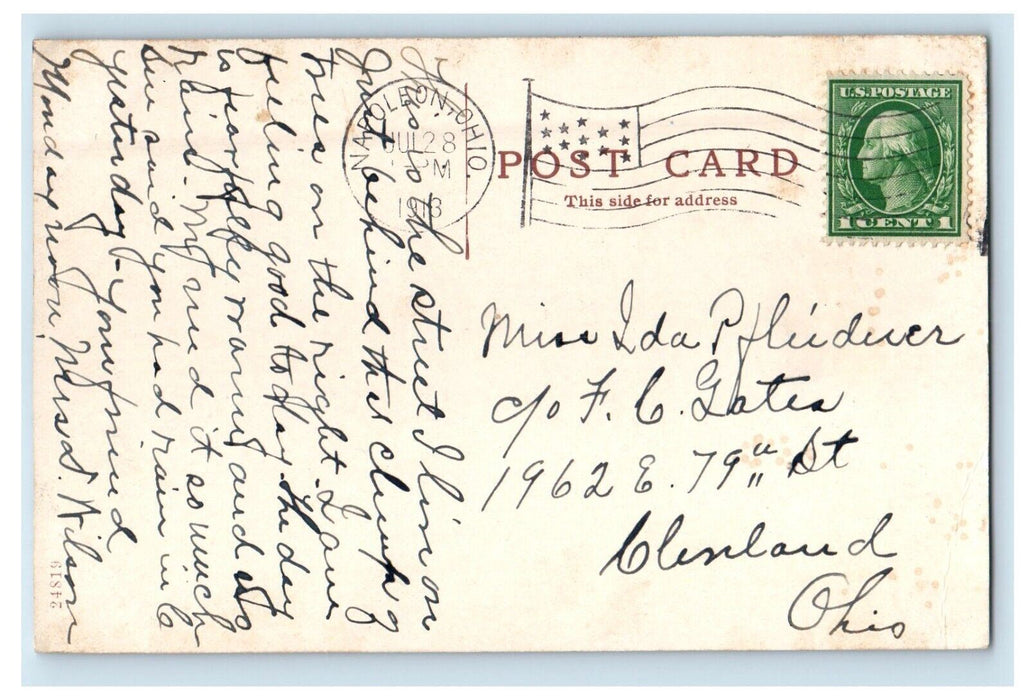 NAPOLEON, OHIO.
JUL 28
M
1913
POST CARD
This side for address
U.S. POSTAGE
1 CENT 1
Miss Ida Pfleiderer
c/o F. C. Gates
1962 E. 79" St
Cleveland
Ohio
This is the street I live on
Just behind this clump of
trees on the right. I am
feeling good to day. the day
is fearfully warm and so
rain. We need it so much
See said you had rain in C
yesterday - your friend
Monday noon, Mrs. Wilson
61842